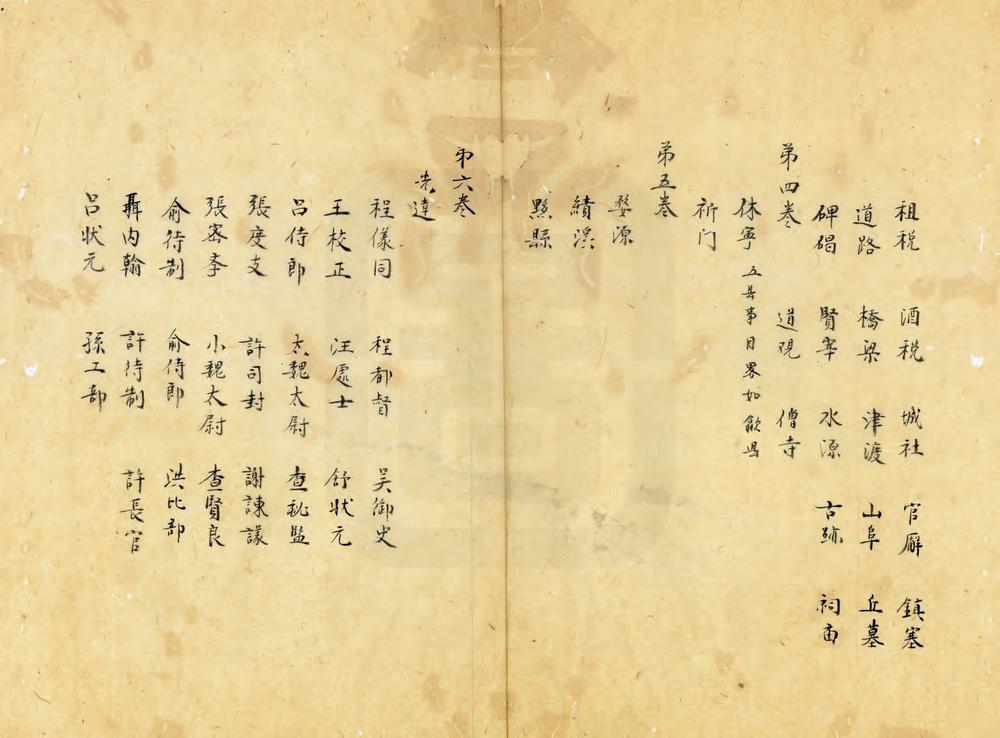 租税　酒税　城社　官廨　鎮塞
道路　橋梁　津渡　山阜　丘墓
碑碣　賢宰　水源　古跡　祠庙
道观　僧寺
第四卷
休寧　五县事目畧如歙县
祈门
第五卷
婺源
績溪
黟縣
第六卷
先達
程儀同　程都督　吴御史
王校正　汪處士　舒状元
吕侍郎　太魏太尉　查秘監
張度支　許司封　謝諫議
張密李　小魏太尉　查賢良
俞待制　俞侍郎　洪比部
聶内翰　許待制　許長官
吕状元　孫工部